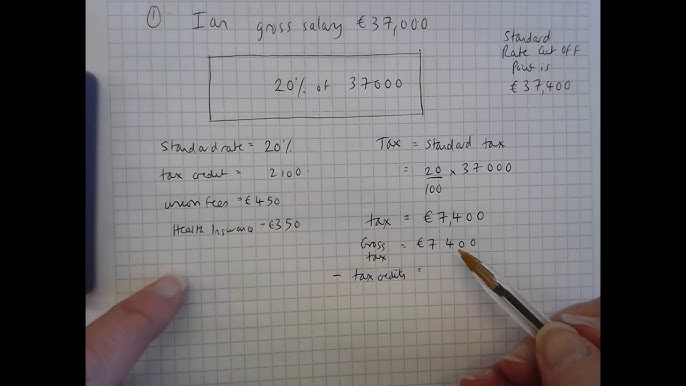 ① Ian gross salary €37,000
20% of 37000
Standard
Rate Cut Off
Point is
€37,400
Standard rate = 20%
tax credit = 2100
union fees = €450
Health Insurance - €350
Tax = Standard tax
= 20/100 × 37000
tax = €7,400
Gross tax = €7400
- tax credits =